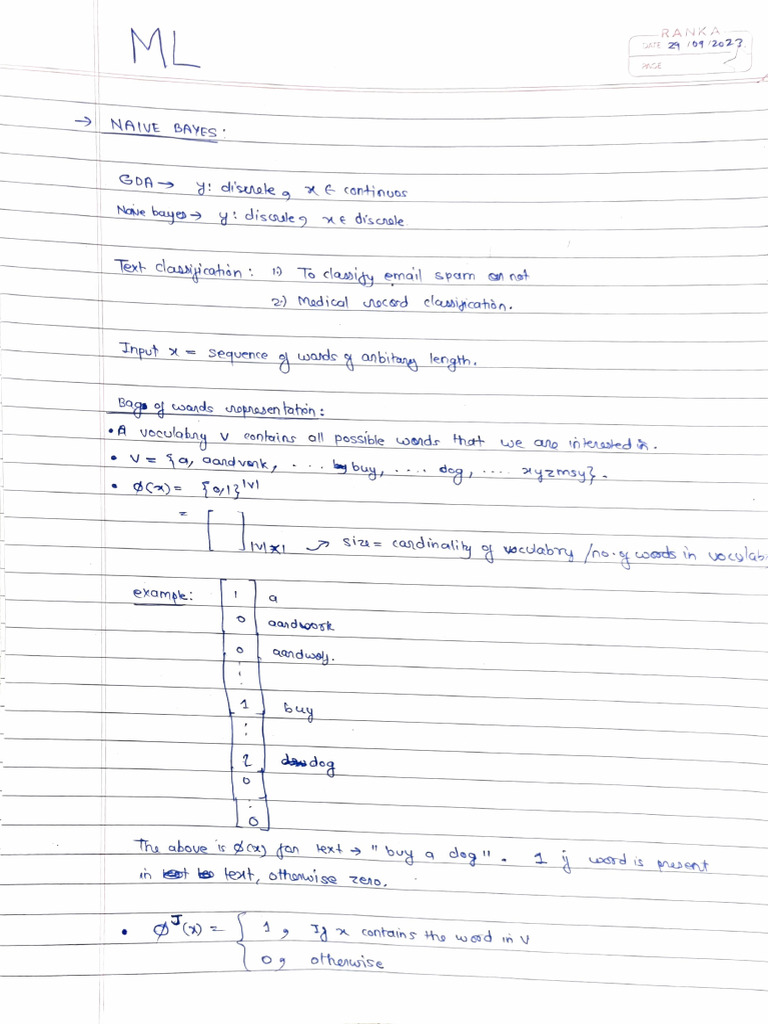 ML
RANKA
DATE 29 / 09 / 2023
PAGE
→ NAIVE BAYES:
GDA → y: discrete, x ∈ continuos
Naive bayes → y: discrete, x ∈ discrete
Text classification: 1.) To classify email spam or not
2.) Medical record classification.
Input x = sequence of words of arbitary length.
Bag of words representation:
• A voculabry V contains all possible words that we are interested in.
• V = {a, aardvark, .... buy, .... dog, .... xyzmsy}.
• ϕ(x) = {0,1}^|V|
= [ ] |V|x1 → size = cardinality of voculabry / no. of words in voculab
example: 1 a
0 aardwork
0 aardwolf.
⋮
1 buy
⋮
1 dog
0
⋮
0
The above is ϕ(x) for text → "buy a dog". 1 if word is present
in text, otherwise zero.
• ϕ^J(x) = { 1, If x contains the word in V
0, otherwise